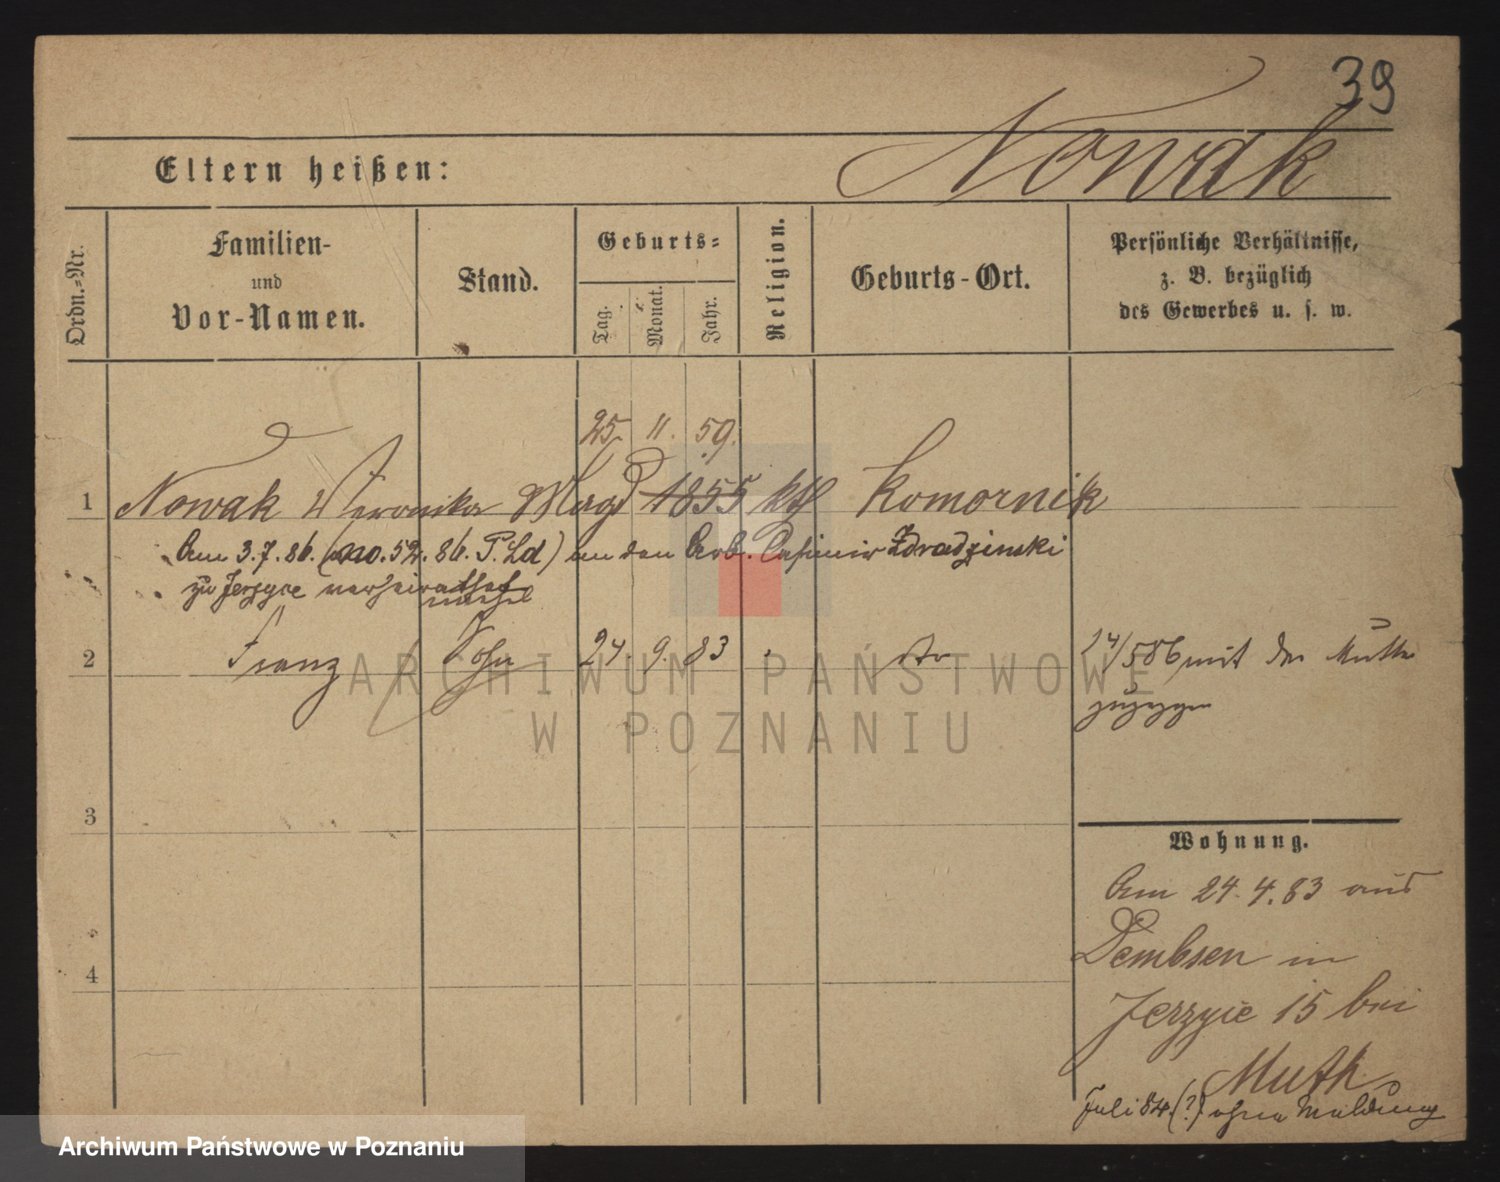 39
Nowak
Eltern heißen:
Ordn.-Nr.
Familien-
und
Vor-Namen.
Stand.
Geburts-
Tag.
Monat.
Jahr.
Religion.
Geburts-Ort.
Persönliche Verhältnisse,
z. B. bezüglich
des Gewerbes u. s. w.
25. 11. 59.
1 Nowak Veronika Magd 1855 kth Komornik
Am 3.7.86. (no. 52. 86. P. Ld) an den Arb. Casimir Zdradzinski
zu Jerzyce verheirathet
2 Franz Sohn 24. 9. 83 " do 24/5 86 mit der Mutter
zugezogen
3
Wohnung.
Am 24.4.83 aus
Dembsen in
4
Jerzyce 15 bei
Muth
Juli 84 (?) ohne Meldung
ARCHIWUM PAŃSTWOWE
W POZNANIU
Archiwum Państwowe w Poznaniu